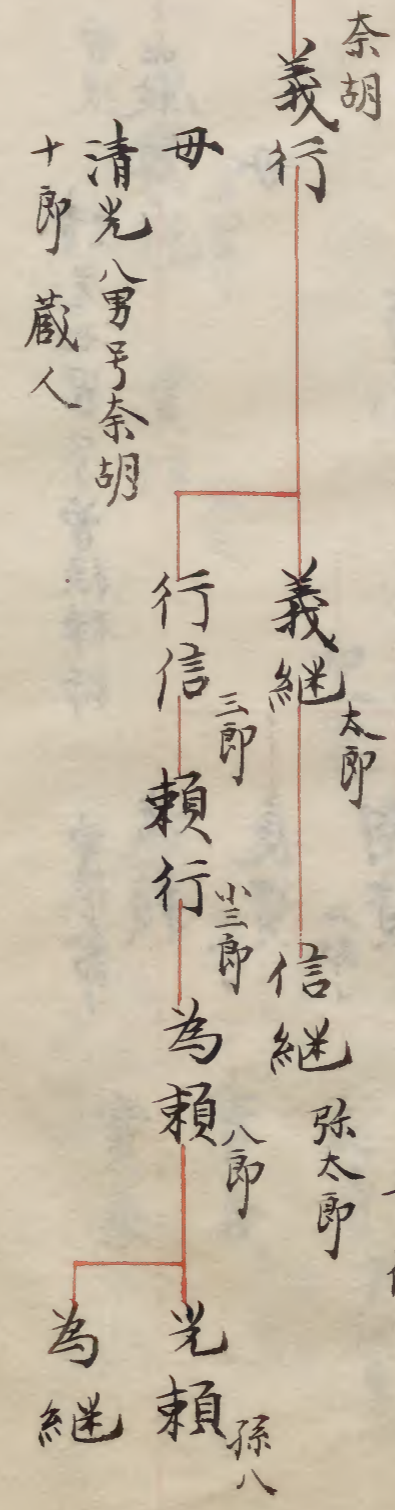 奈胡
義行
母
清光八男号奈胡
十郎 蔵人
義継
太郎
信継
弥太郎
行信
三郎
頼行
小三郎
為頼
八郎
光頼
孫八
為継